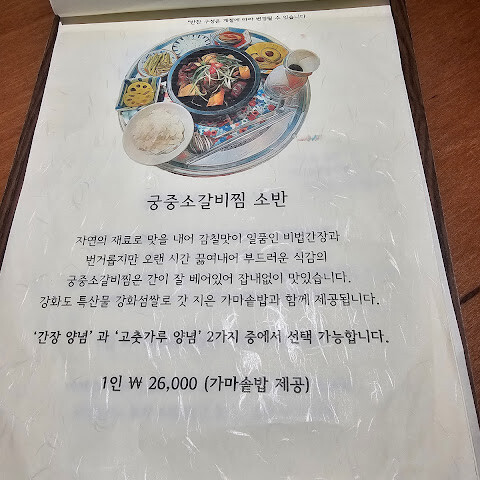 *반찬 구성은 계절에 따라 변경될 수 있습니다
궁중소갈비찜 소반
자연의 재료로 맛을 내어 감칠맛이 일품인 비법간장과
번거롭지만 오랜 시간 끓여내어 부드러운 식감의
궁중소갈비찜은 간이 잘 베어있어 잡내없이 맛있습니다.
강화도 특산물 강화섬쌀로 갓 지은 가마솥밥과 함께 제공됩니다.
‘간장 양념’ 과 ‘고춧가루 양념’ 2가지 중에서 선택 가능합니다.
1인 ₩ 26,000 (가마솥밥 제공)